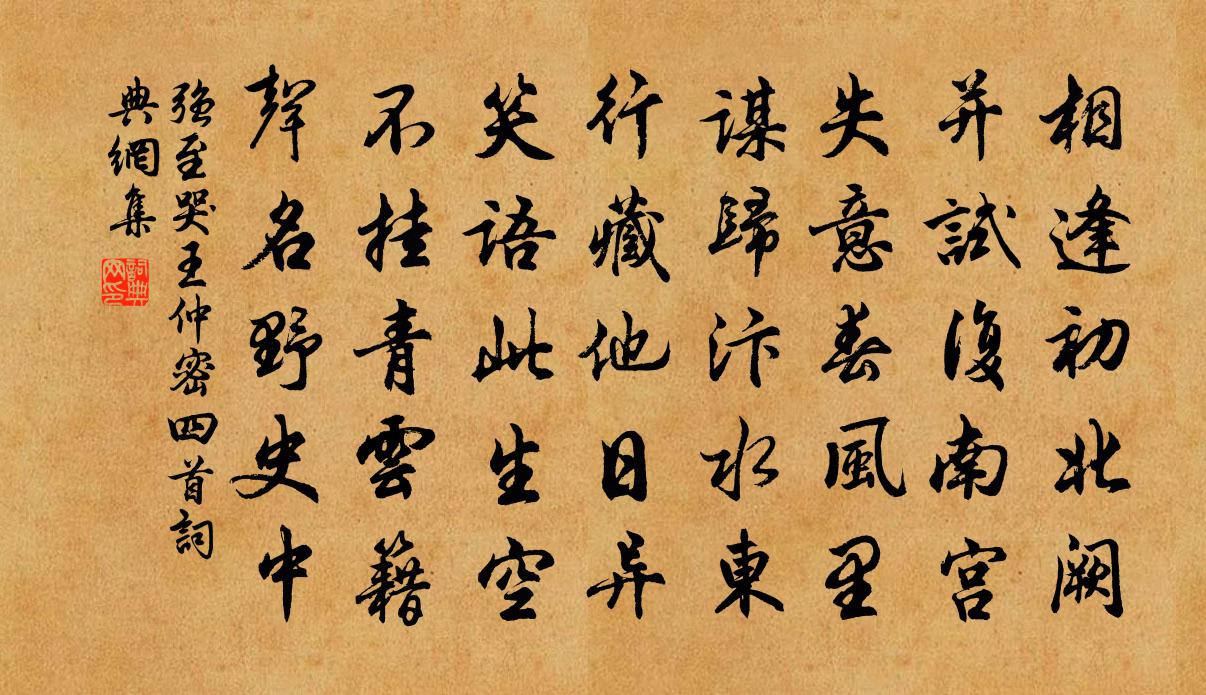 相逢初北阙
并試復南宫
失意春風里
謀歸汴水東
行藏他日异
笑語此生空
不挂青雲籍
聲名野史中
强至哭王仲密四首詞
典網集
詞典
网印